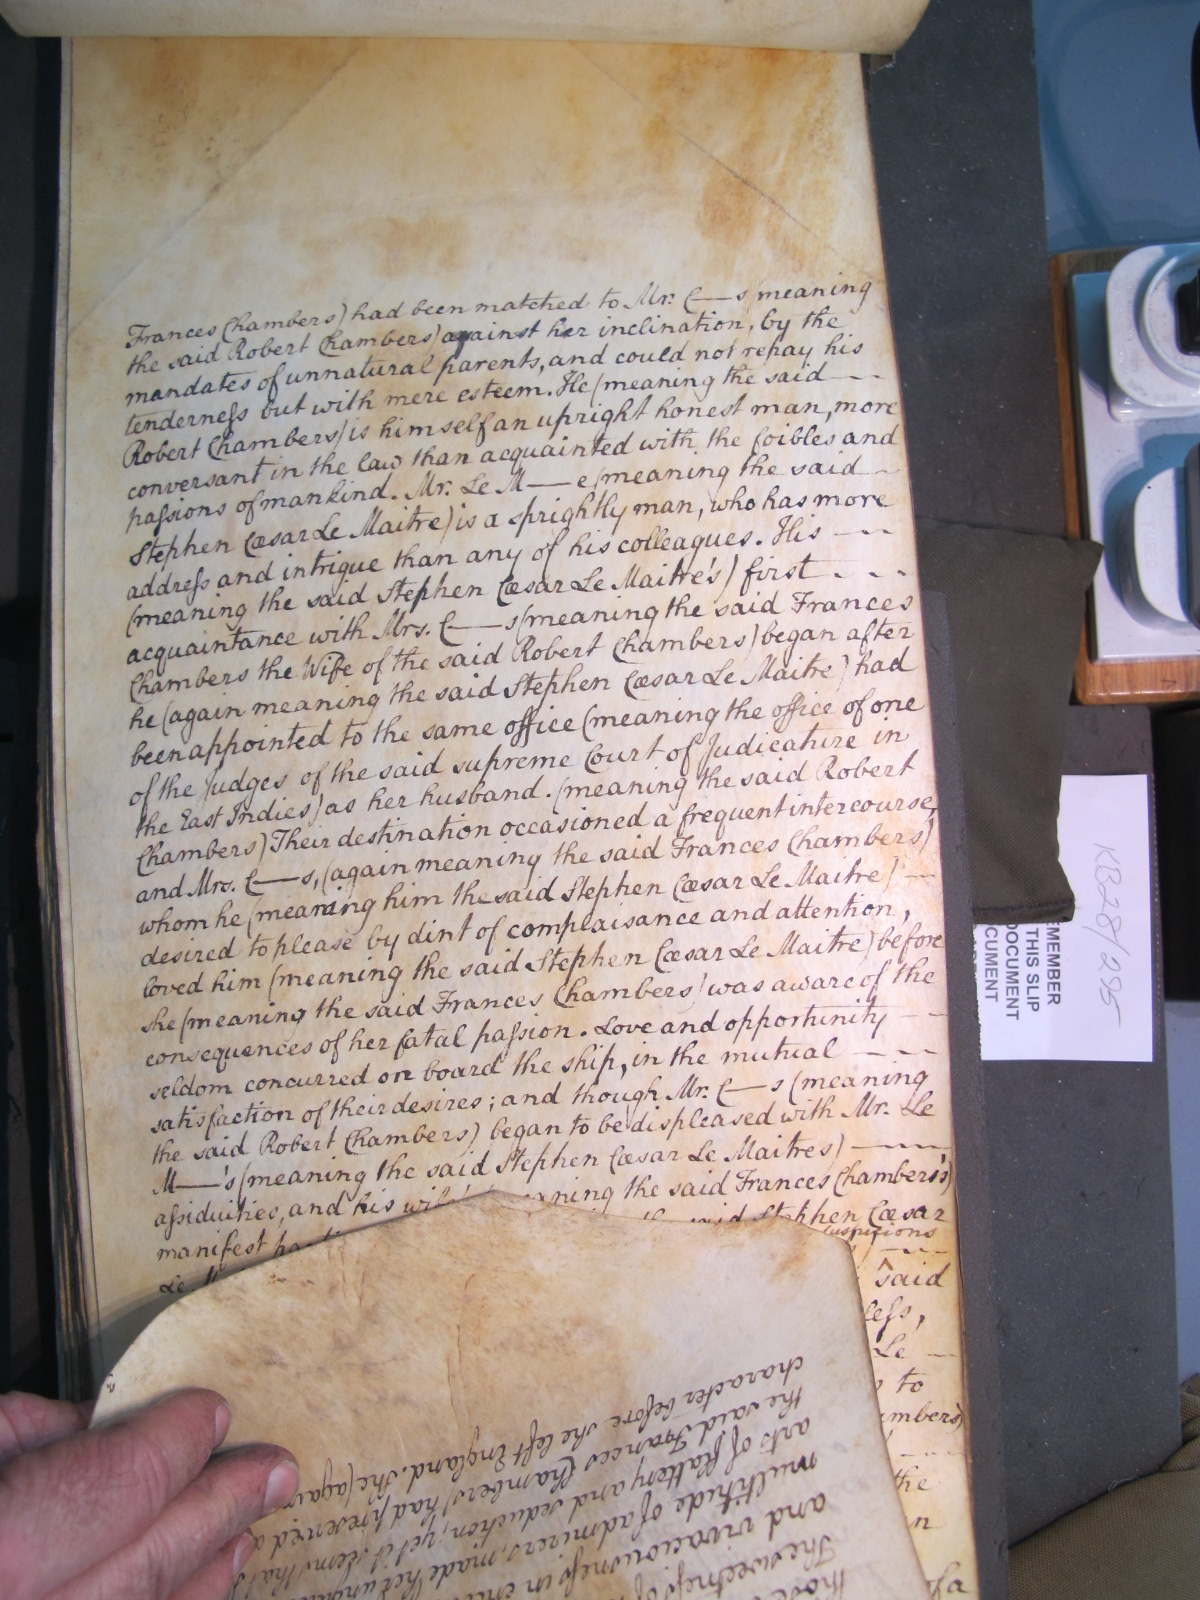 Frances Chambers) had been matched to Mr. C——s (meaning
the said Robert Chambers) against her inclination, by the
mandates of unnatural parents, and could not repay his
tenderneſs but with mere esteem. He (meaning the said
Robert Chambers) is himself an upright honest man, more
conversant in the law than acquainted with the foibles and
paſsions of mankind. Mr. Le M——e (meaning the said
Stephen Cæsar Le Maitre) is a sprightly man, who has more
addreſs and intrigue than any of his colleagues. His
(meaning the said Stephen Cæsar Le Maitre's) first
acquaintance with Mrs. C——s (meaning the said Frances
Chambers the Wife of the said Robert Chambers) began after
he (again meaning the said Stephen Cæsar Le Maitre) had
been appointed to the same office (meaning the office of one
of the Judges of the said supreme Court of Judicature in
the East Indies) as her husband. (meaning the said Robert
Chambers) Their destination occasioned a frequent intercourse,
and Mrs. C——s, (again meaning the said Frances Chambers)
whom he (meaning him the said Stephen Cæsar Le Maitre)
desired to please by dint of complaisance and attention,
loved him (meaning the said Stephen Cæsar Le Maitre) before
she (meaning the said Frances Chambers) was aware of the
consequences of her fatal paſsion. Love and opportunity
seldom concurred on board the ship, in the mutual
satisfaction of their desires; and though Mr. C——s (meaning
the said Robert Chambers) began to be displeased with Mr. Le
M——'s (meaning the said Stephen Cæsar Le Maitres)
aſsiduities, and his meaning the said Frances Chambers's)
manifest said Stephen Cæsar
Le suspicions
said
Le
to
the
character before she left England. She (again
the said Frances Chambers) had preserved a
arts of flattery and seduction; yet it seems that
multitude of admirers, made her
and vivaciousneſs in
The sweetneſs of
those
KB28/295
THIS SLIP
DOCUMENT